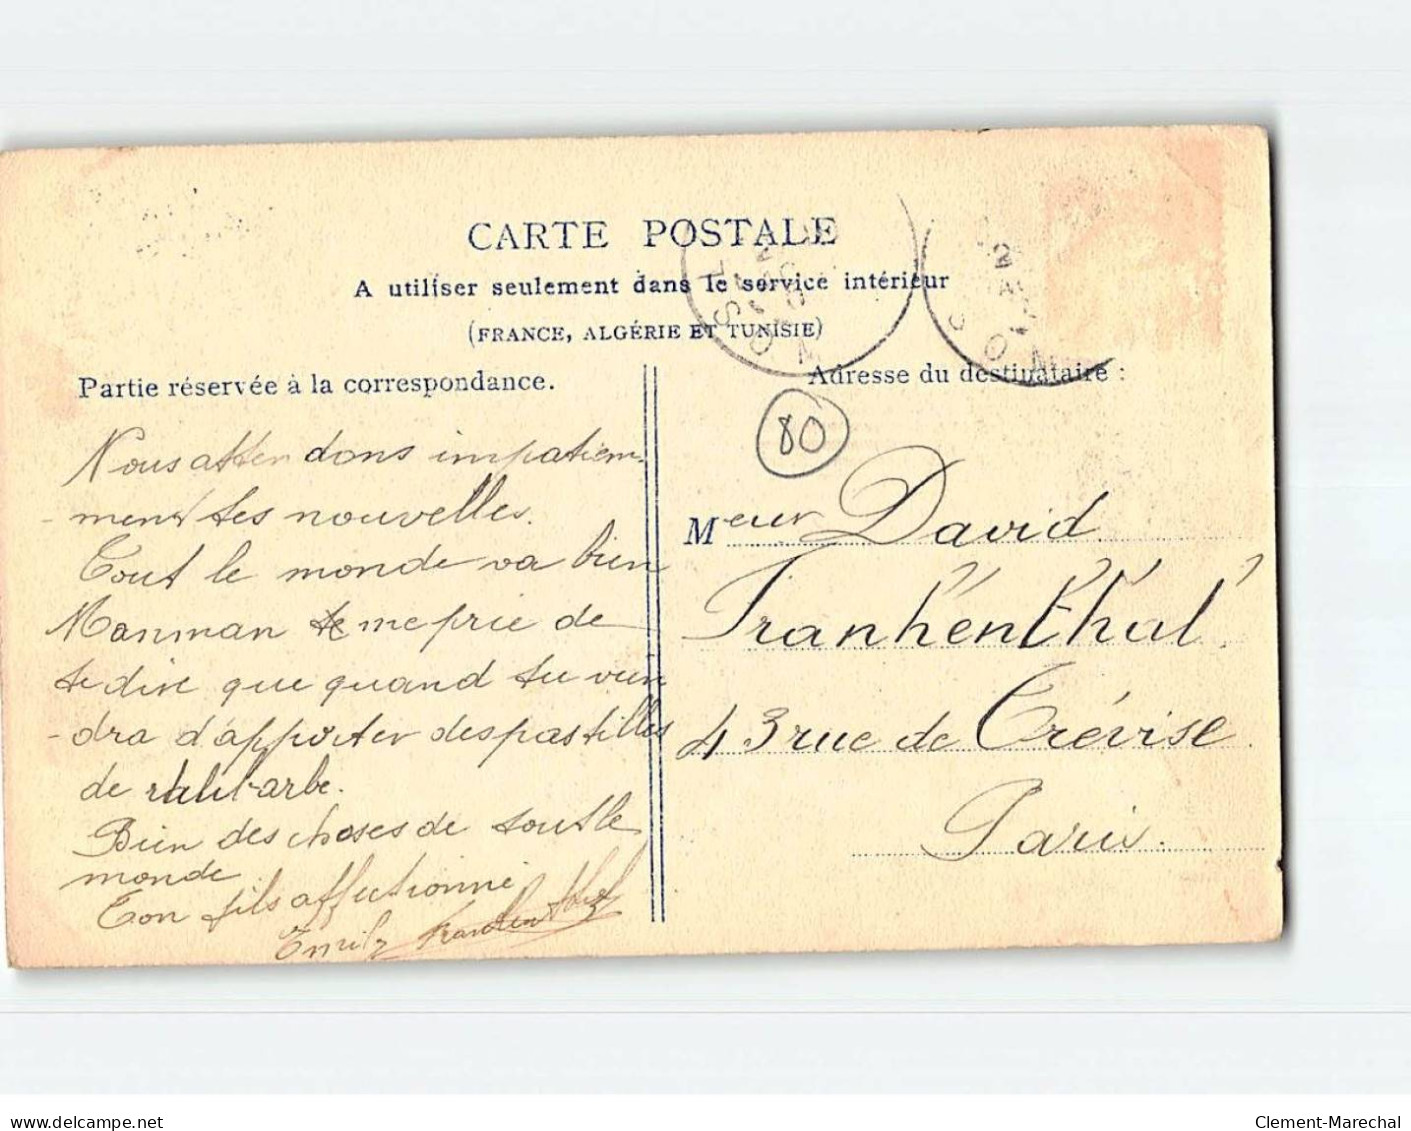 CARTE POSTALE
A utiliser seulement dans le service intérieur
(FRANCE, ALGÉRIE ET TUNISIE)
Partie réservée à la correspondance.
Adresse du destinataire :
80
Nous attendons impatiem-
- ment tes nouvelles.
Tout le monde va bien
Manman me prie de
te dire que quand tu vien
- dra d'apporter des pastilles
de rhubarbe.
Bien des choses de tout le
monde
Ton fils affectionné
Emile Frankenthal
Meur David
Frankenthal
43 rue de Trévise
Paris.
delcampe.net
Clement-Marechal